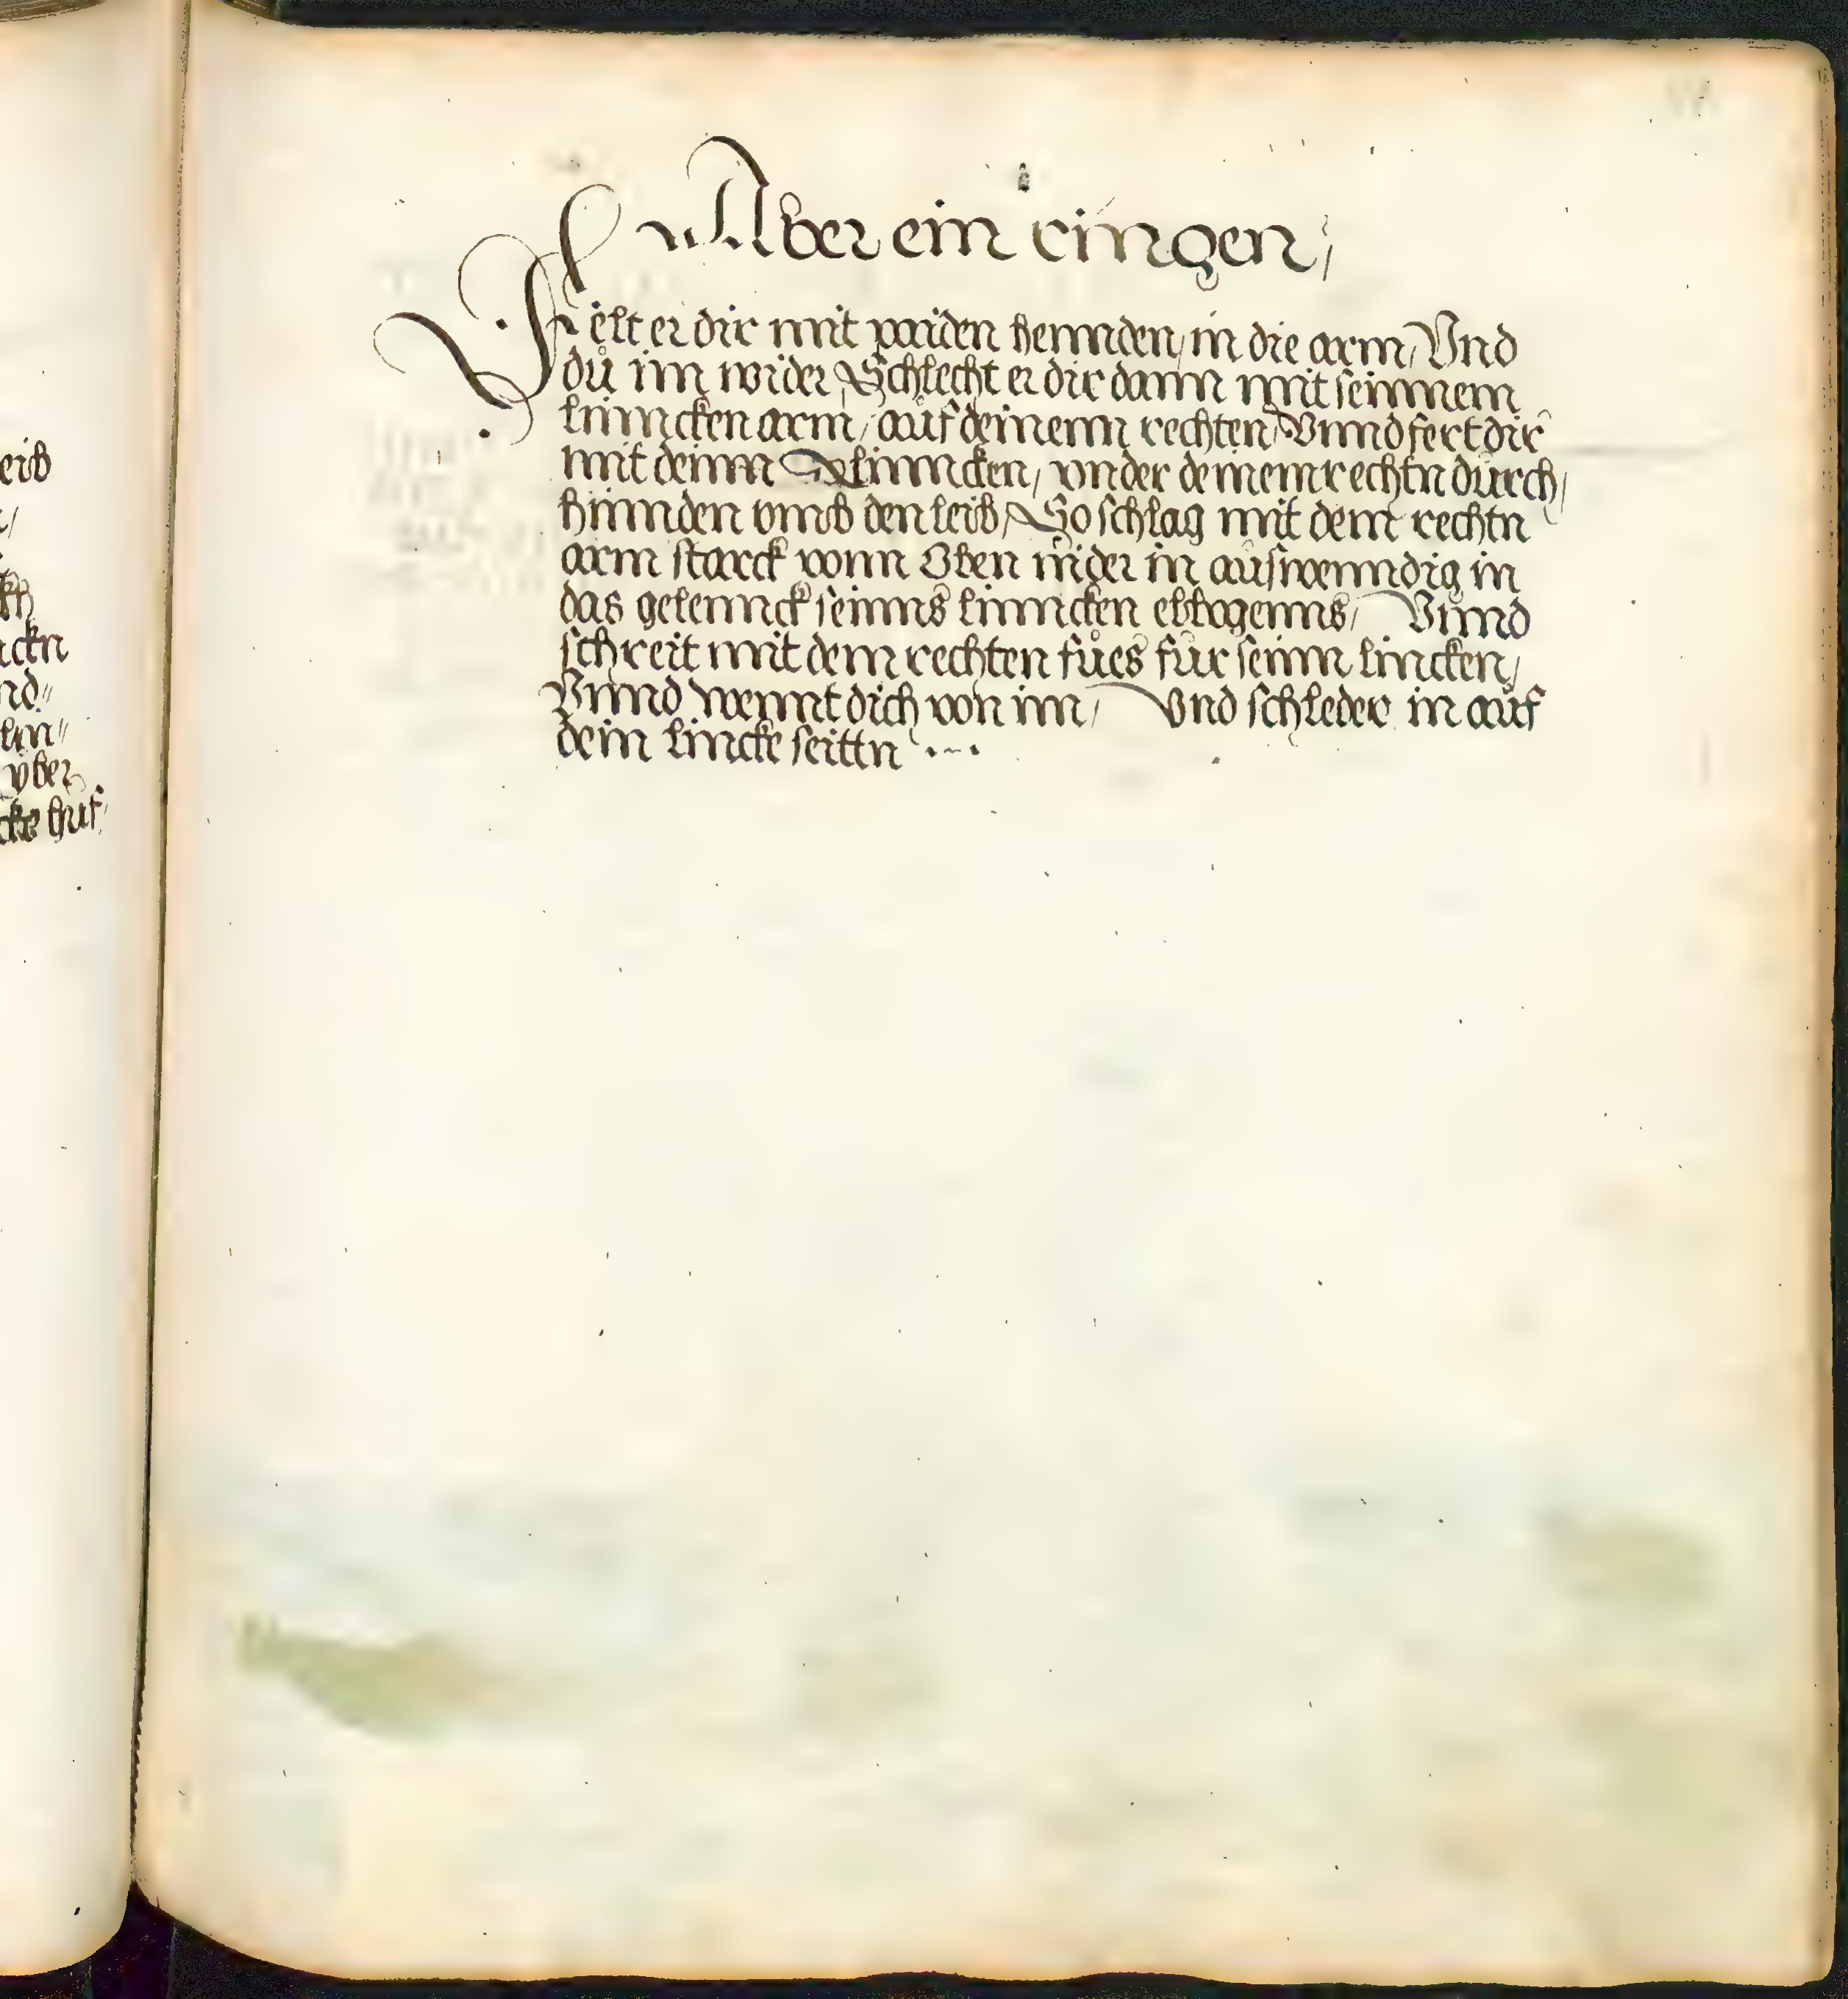 eib
kh
ckn
nd"
lin"
vber
cke huf
Aber ein ringen /
Felt er dir mit paiden hennden / in die arm / Vnd
dů im wider / Schlecht er dir dann mit seinnem
linncken arm / aůf deinenn rechten / Vnnd fert dir
mit deinn linncken / vnder deinem rechtn důrch /
hinnden vmb den leib / So schlag mit dem rechtn
arm starck vonn Oben nider in aůswenndig in
das gelennck seinns linncken elbogenns / Vnnd
schreit mit dem rechten fůes fůr seinn lincken /
Vnnd wennt dich von im / Vnd schleder in aůf
dein lincke seittn